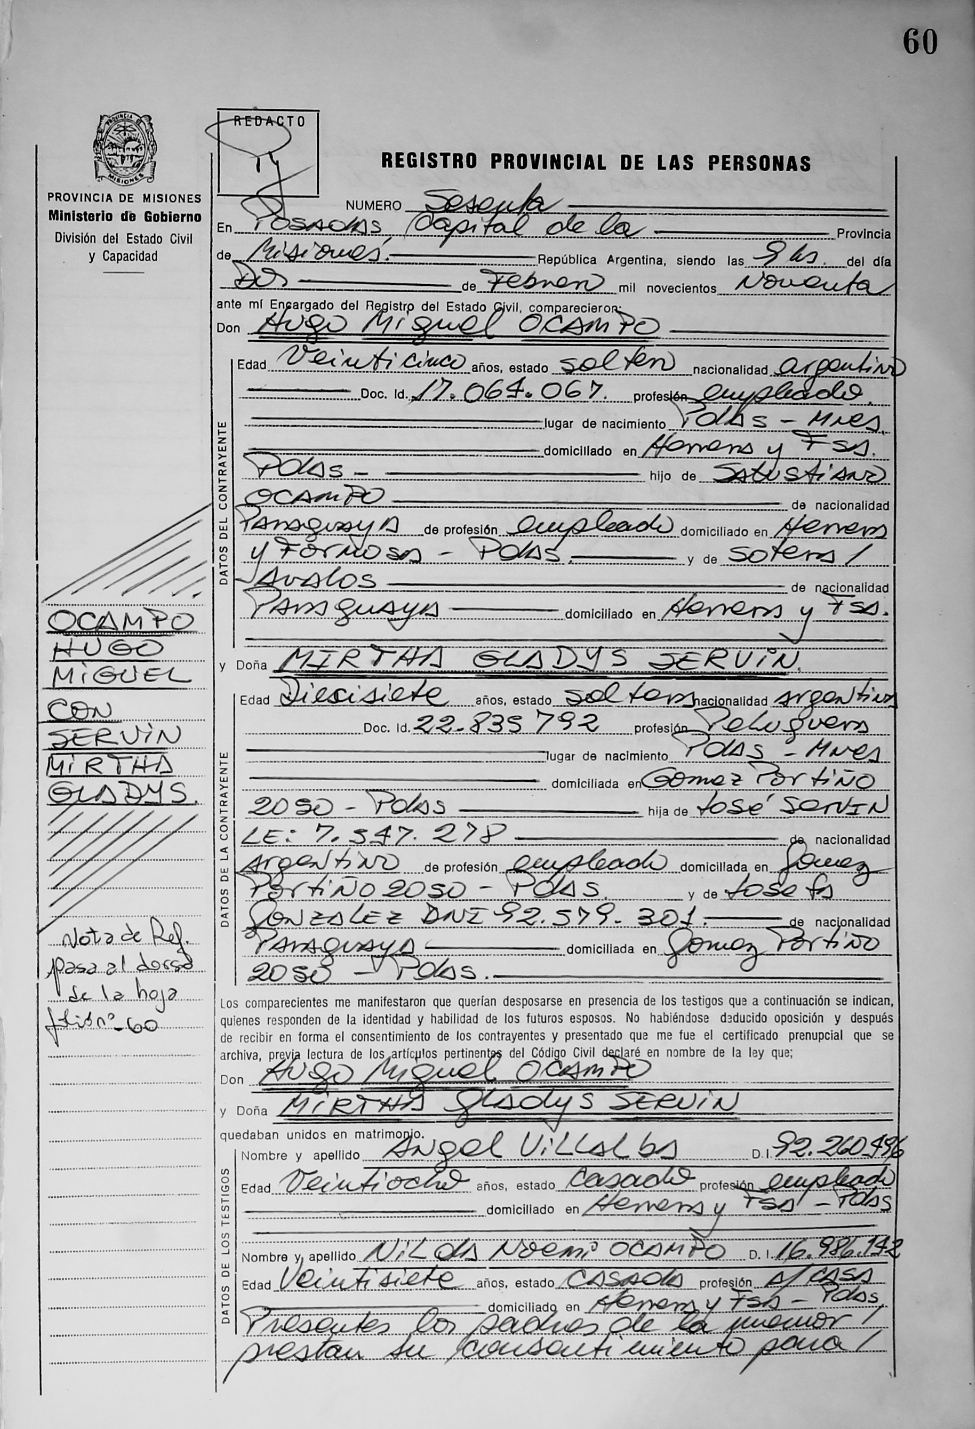 60
PROVINCIA DE MISIONES
Ministerio de Gobierno
División del Estado Civil
y Capacidad
REDACTO
REGISTRO PROVINCIAL DE LAS PERSONAS
NUMERO Sesenta
En POSADAS Capital de la Provincia
de Misiones. República Argentina, siendo las 9 hs. del día
Dos de Febrero mil novecientos Noventa
ante mí Encargado del Registro del Estado Civil, comparecieron:
Don HUGO Miguel OCAMPO
DATOS DEL CONTRAYENTE
Edad Veinticinco años, estado soltero nacionalidad argentino
Doc. Id. 17.064.067. profesión empleado.
lugar de nacimiento Pdas - Mnes.
domiciliado en Herrera y FSA.
Pdas - hijo de SALUSTIANO
OCAMPO de nacionalidad
Paraguaya de profesión empleado domiciliado en Herrera
y Formosa - Pdas. y de Sotera /
AVALOS de nacionalidad
Paraguaya domiciliado en Herrera y FSA.
y Doña MIRTHA GLADYS SERVIN.
DATOS DE LA CONTRAYENTE
Edad Diecisiete años, estado soltera nacionalidad argentina
Doc. Id. 22.835792 profesión Peluquera
lugar de nacimiento Pdas - Mnes
domiciliada en Gomez Portiño
2050 - Pdas hija de José SERVIN
LE: 7.547.278 de nacionalidad
argentino de profesión empleado domiciliada en Gomez
Portiño 2050 - Pdas. y de Josefa
GONZALEZ DNI 92.579.301. de nacionalidad
Paraguaya domiciliada en Gomez Portiño
2050 - Pdas.
OCAMPO
HUGO
MIGUEL
CON
SERVIN
MIRTHA
GLADYS.
Nota de Ref.
pasa al dorso
de la hoja
folio nº 60
Los comparecientes me manifestaron que querían desposarse en presencia de los testigos que a continuación se indican,
quienes responden de la identidad y habilidad de los futuros esposos. No habiéndose deducido oposición y después
de recibir en forma el consentimiento de los contrayentes y presentado que me fue el certificado prenupcial que se
archiva, previa lectura de los artículos pertinentes del Código Civil declaré en nombre de la ley que;
Don HUGO Miguel OCAMPO
y Doña MIRTHA GLADYS SERVIN
quedaban unidos en matrimonio.
DATOS DE LOS TESTIGOS
Nombre y apellido ANGEL VILLALBA D.I. 92.260.496
Edad Veintiocho años, estado Casado profesión empleado
domiciliado en Herrera y FSA - Pdas
Nombre y apellido NILDA Noemi OCAMPO D. I. 16.986.142
Edad Veintisiete años, estado CASADA profesión A/CASA
domiciliado en Herrera y FSA - Pdas.
Presentes los padres de la menor /
prestan su consentimiento para /